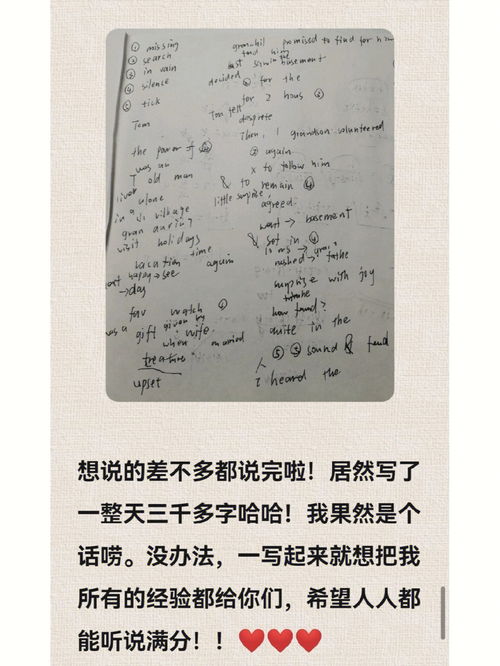 ① missing
② search
③ in vain
④ silence
⑤ tick
Tom
the power of ④
was an
T old man
lives alone
in a village
visit holidays
vacation time
again
happy → see
→ day
fav watch
was a gift given by
wife
when married
treature
upset
promised to find for him
him
basement
decided ② for the
for 2 hous
Tom felt
desprete
Then, 1 grandson volunteered
② again
x to follow him
& to remain ④
little surprise
agreed.
want → basement
& set in ④
rushed →
surprise with joy
how found?
quite in the
⑤ ⑤ sound & find
人
I heard the
想说的差不多都说完啦！居然写了
一整天三千多字哈哈！我果然是个
话唠。没办法，一写起来就想把我
所有的经验都给你们，希望人人都
能听说满分！！❤️❤️❤️